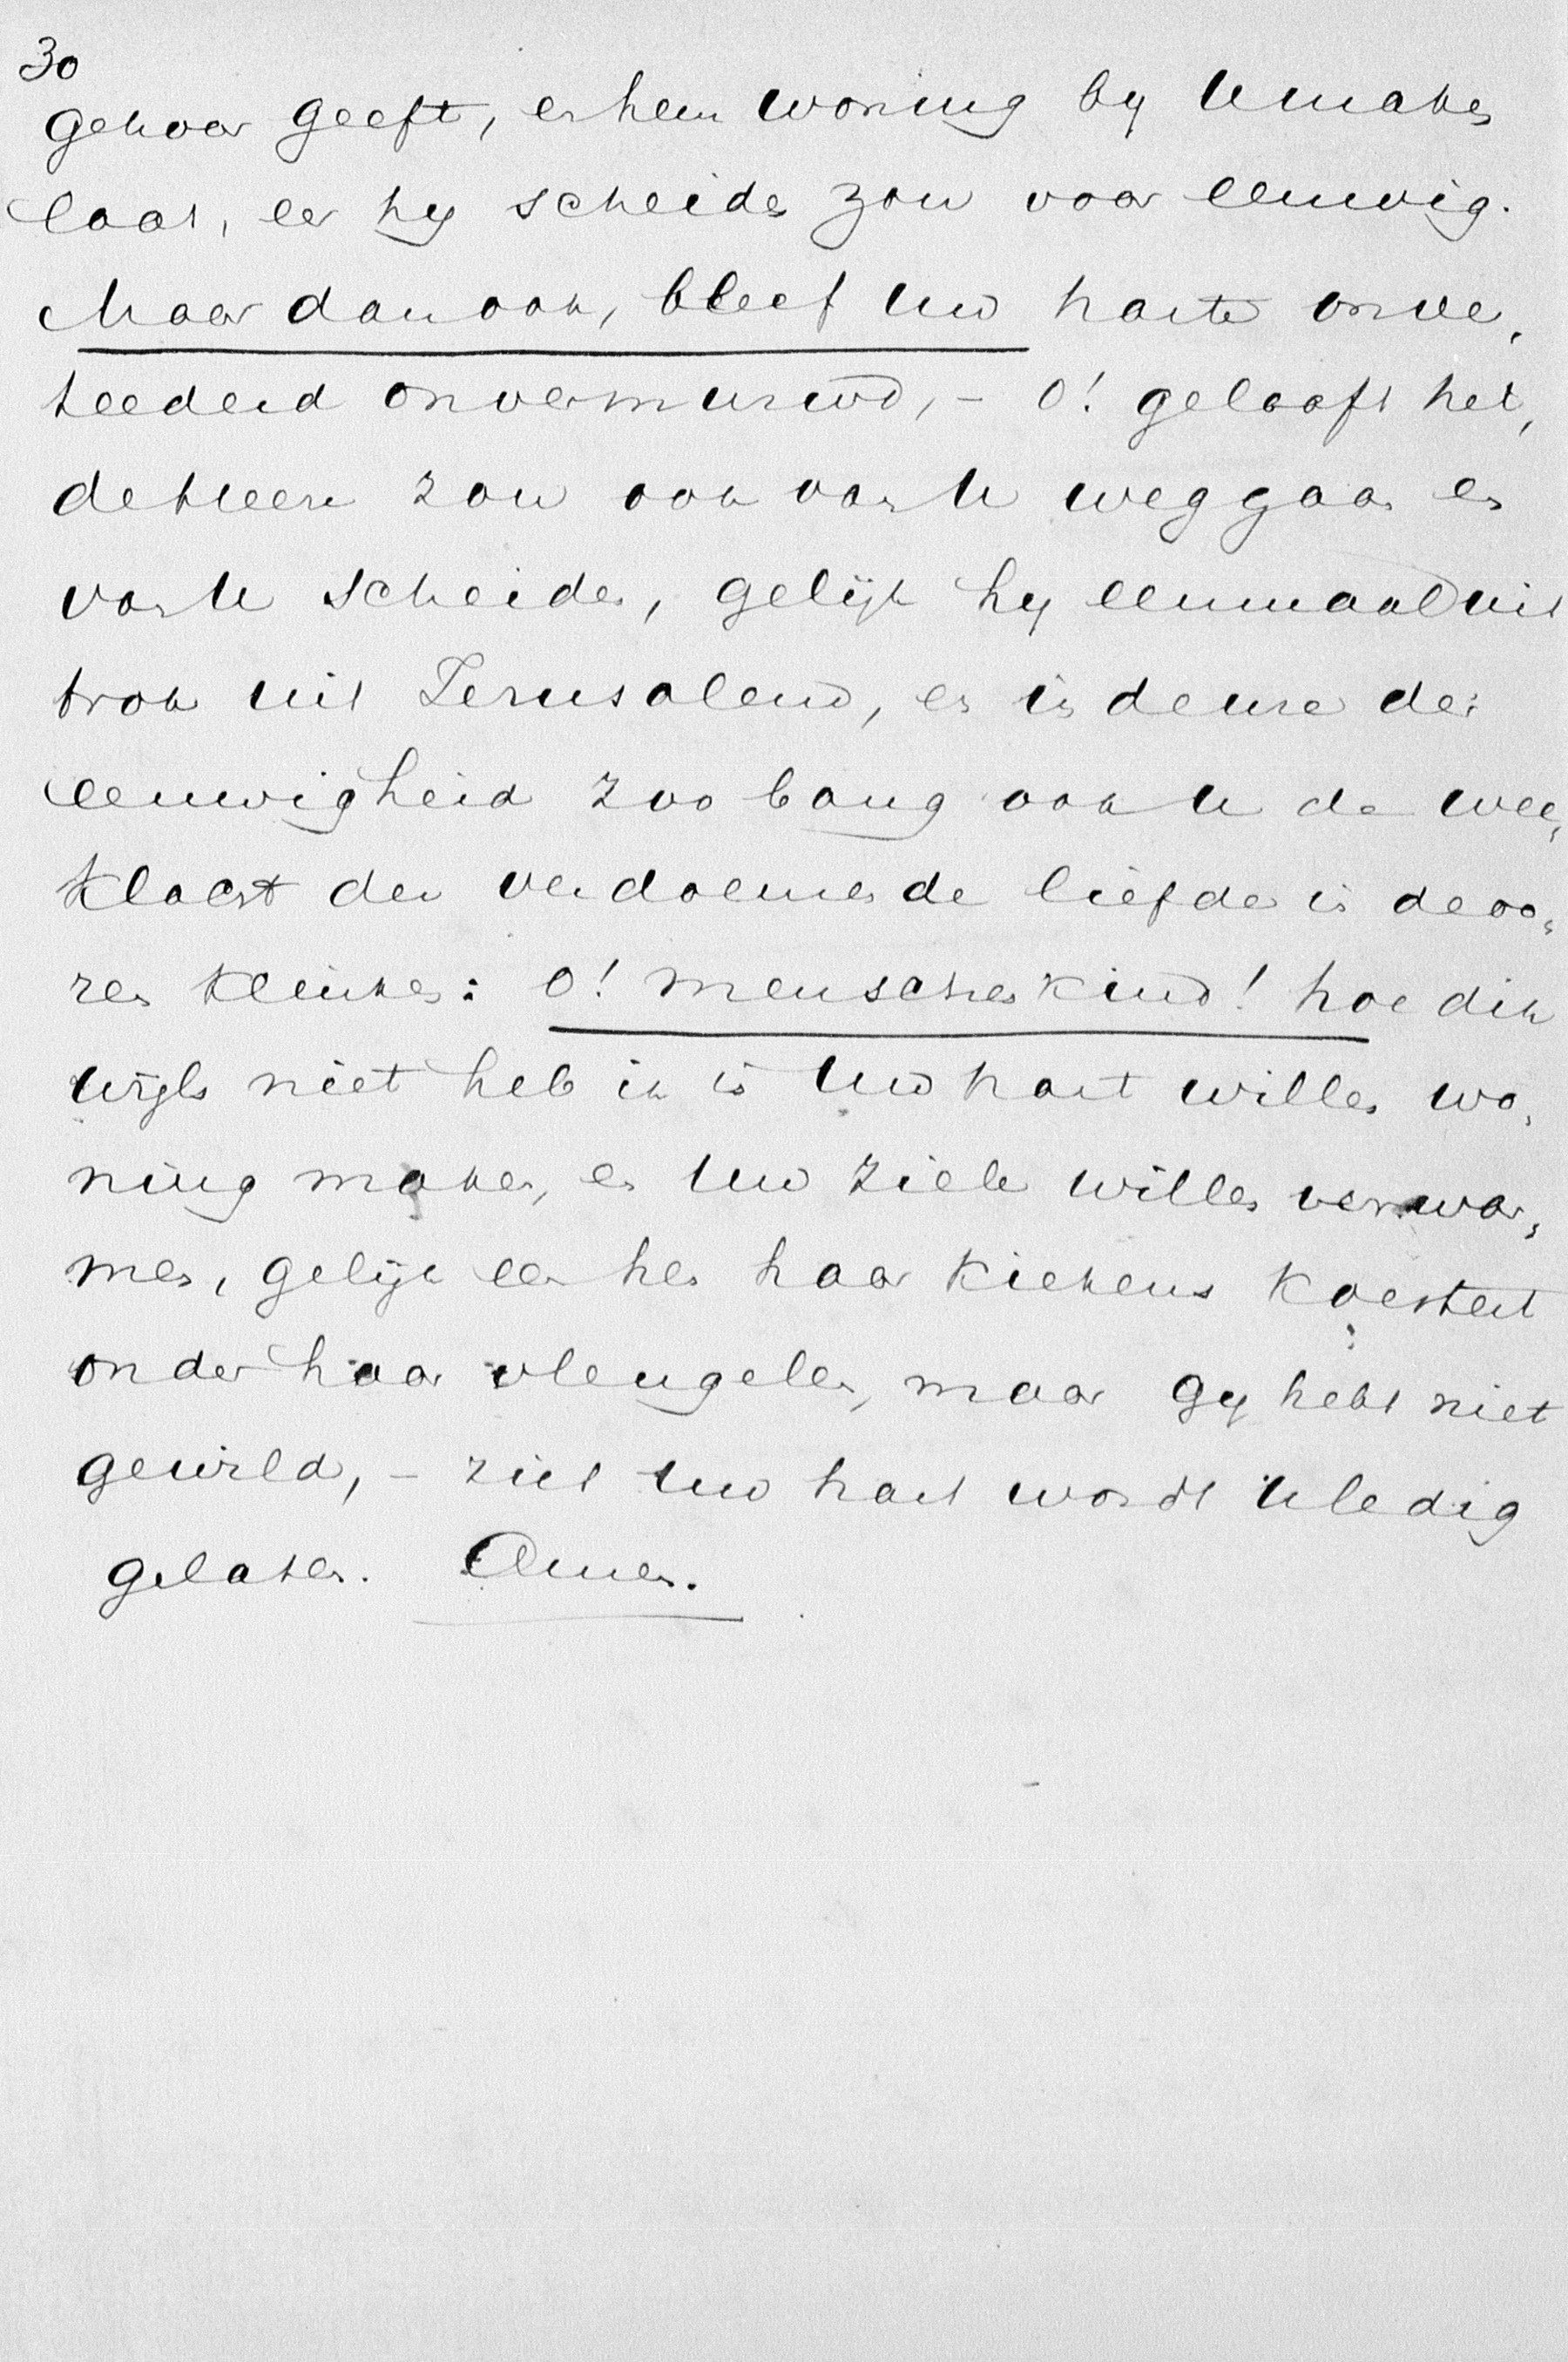 30
gehoor geeft, en hem woning by U maken
laat, eer hy scheiden zou voor eeuwig.
Maar dan ook, bleef Uw harte onver„
teederd onvermurwd, – O! gelooft het,
de Heere zou ook van U weggaan en
van U scheiden, gelijk hy eenmaal uit
trok uit Jerusalem, en in de ure der
eeuwigheid zoo bang ook U de wee„
klacht der verdoemende liefde in de oo„
ren klinken: O! menschenkind! hoe dik
wijls niet heb ik in Uw hart willen wo„
ning maken, en Uw ziele willen verwar„
men, gelijk een hen haar kiekens koestert
onder haar vleugelen, maar gy hebt niet
gewild, – ziet Uw hart wordt U ledig
gelaten. Amen.